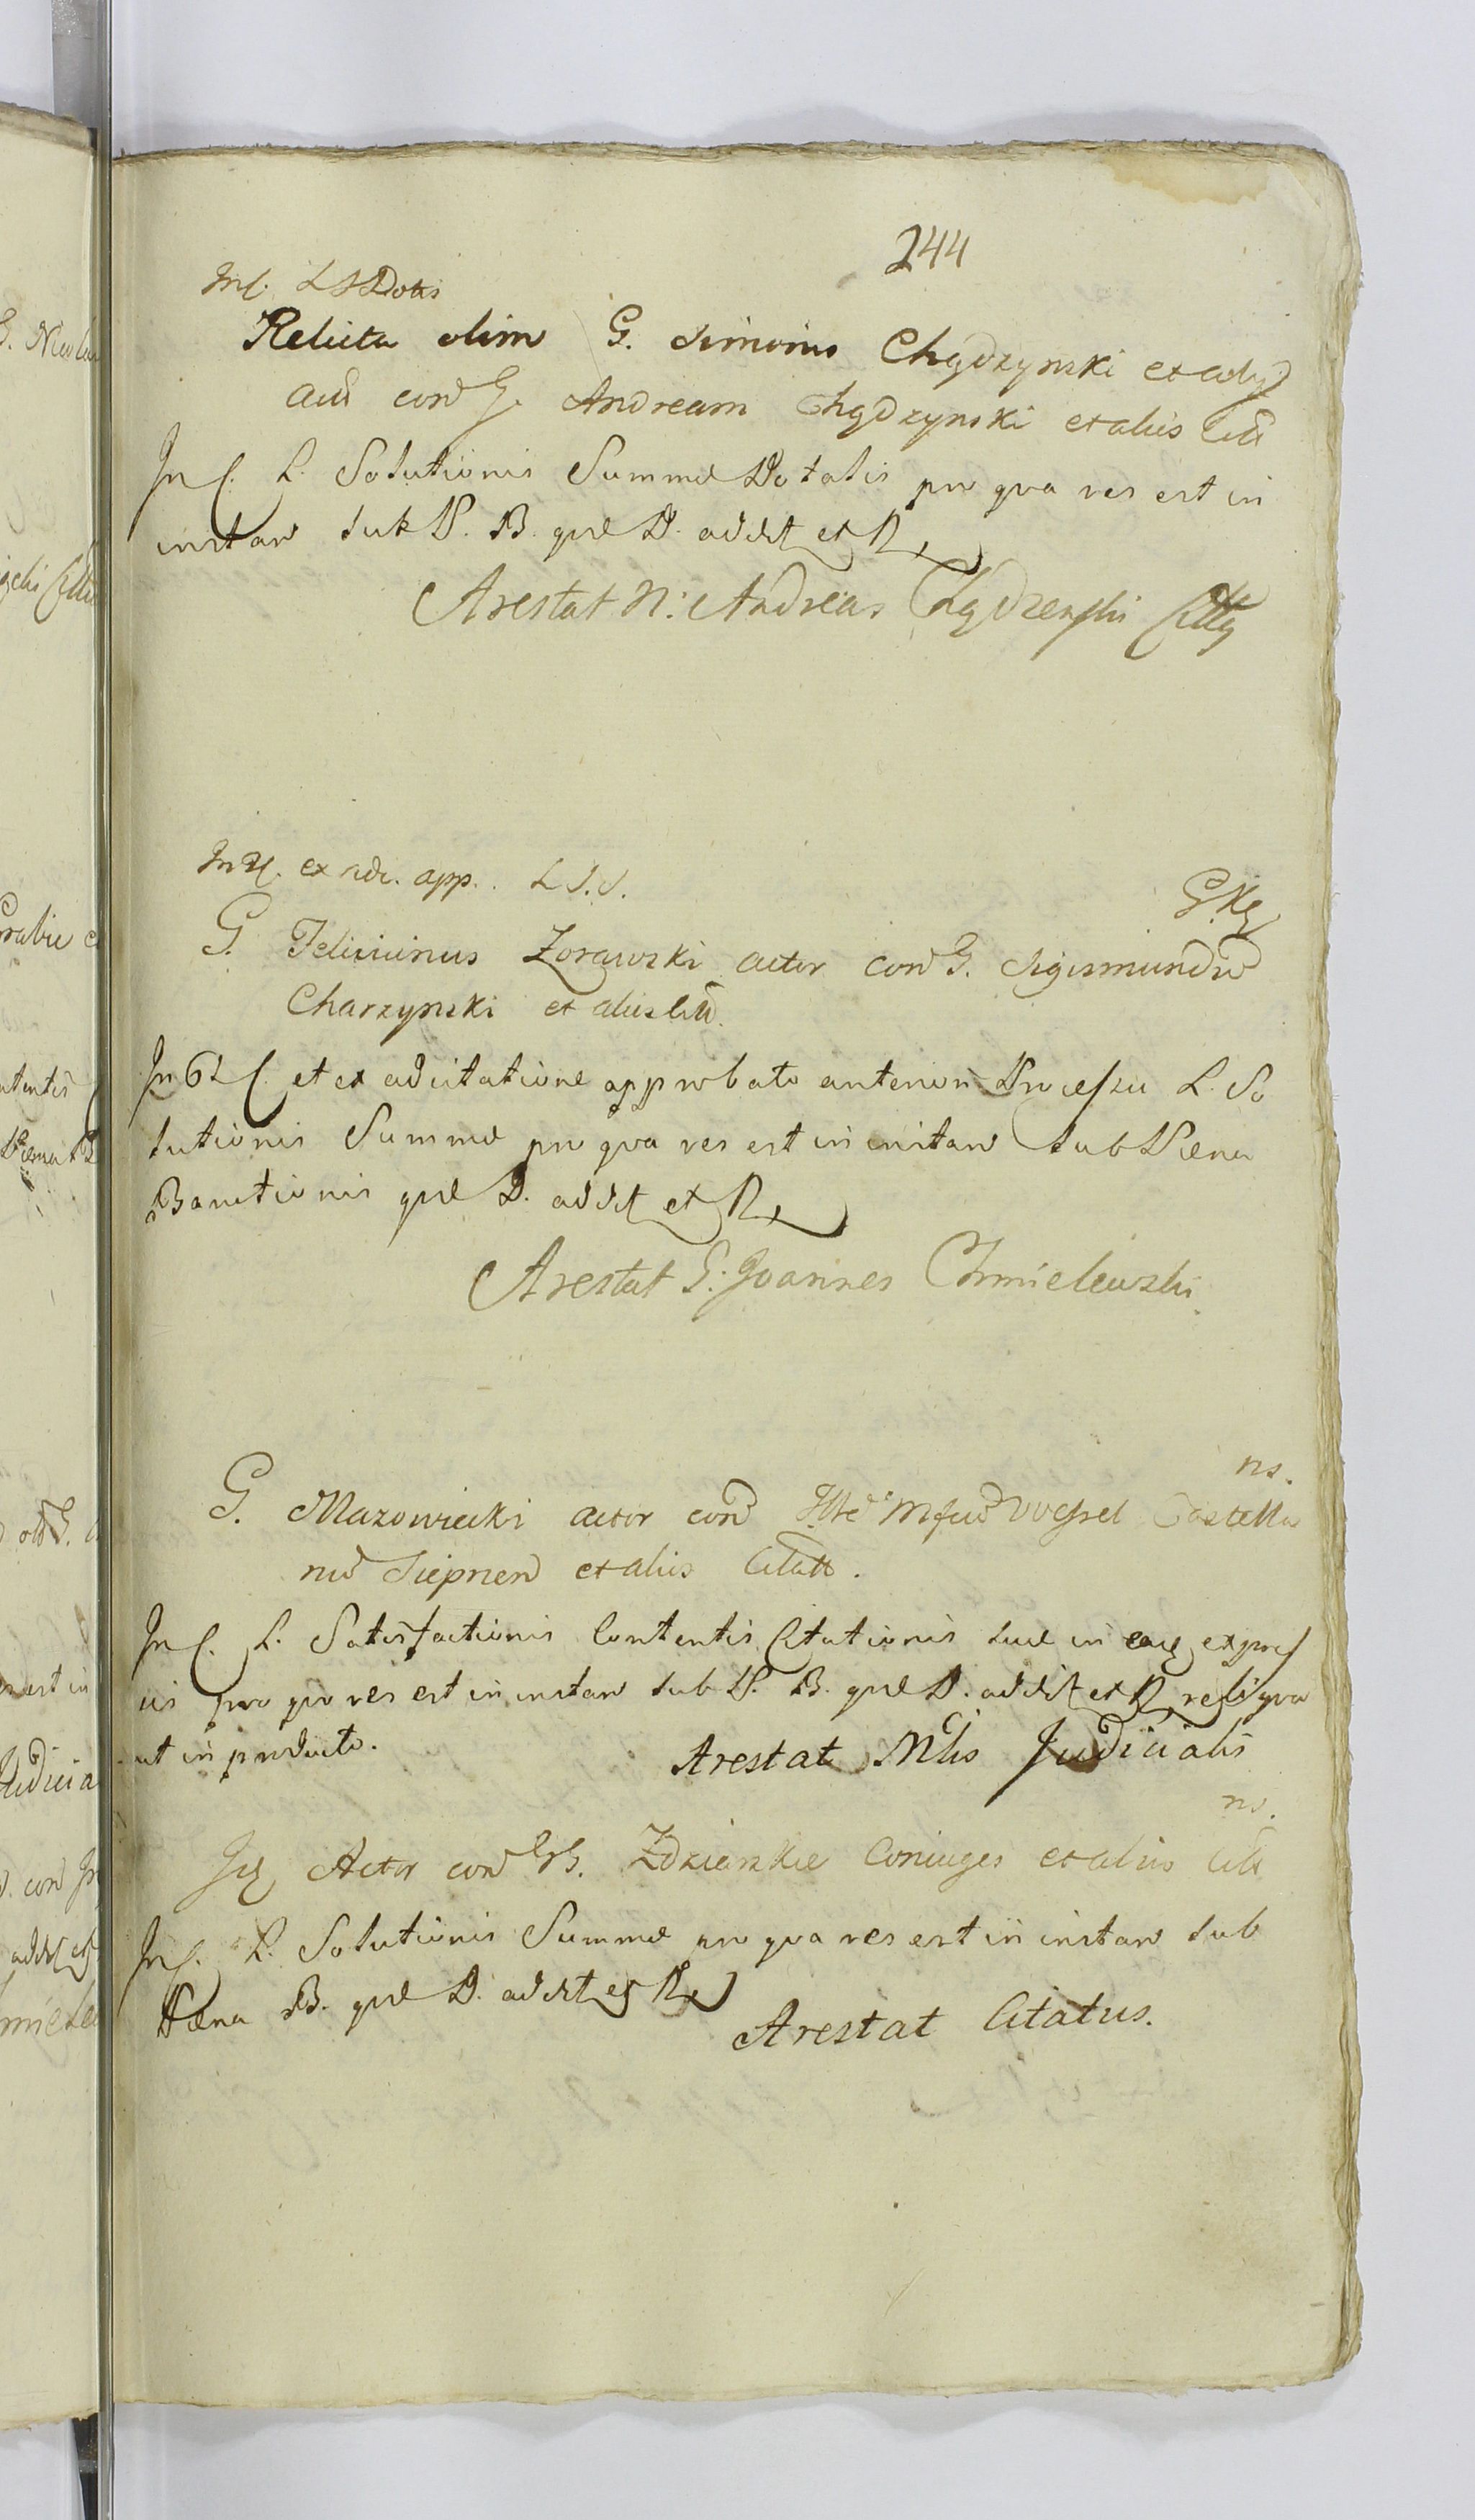 244
In C. L S Dotis
Relicta olim G. Simonis Chądzynski et alij
act cont G. Andream Chądzynski et aliis Citt
In C. L. Solutionis Summæ Dotalis pro qva res est in
instan sub P. B. qræ D. addit et R
Arestat N: Andreas Chądzenski Citty
In 2 C. ex adc. app. L S. S.
G. Felicianus Zorawski actor cont G. Sigismundum
Charzynski et alios Citt.
In 62 C. et ex adcitatione approbato anteriori Processu L. So
lutionis Summæ pro qva res est in instan sub Pæna
Bannitionis qræ D. addit et R
Arestat G. Joannes Chmielewski
ns.
G. Mazowiecki actor cont Illrē Mfcum Wessel Castella
num Siepnen et aliis Citatt.
In C. L. Satisfactionis Contentis Citationis suæ in eaq expres
sis pro qvo res est in instan sub P. B. qræ D. addit et R reliqva
ut in producto.
Arestat Mlis Judicialis
ns.
Iq Actor cont GG. Zdziarskie Coniuges et alios Citt
In C. L. Solutionis Summæ pro qva res est in instan sub
Pæna B. qræ D. addit et R
Arestat Citatus.